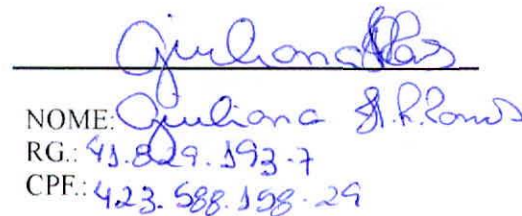 Giuliana
NOME: Giuliana A.R.Ramos
RG.: 41.829.193-7
CPF.: 423.588.158-29